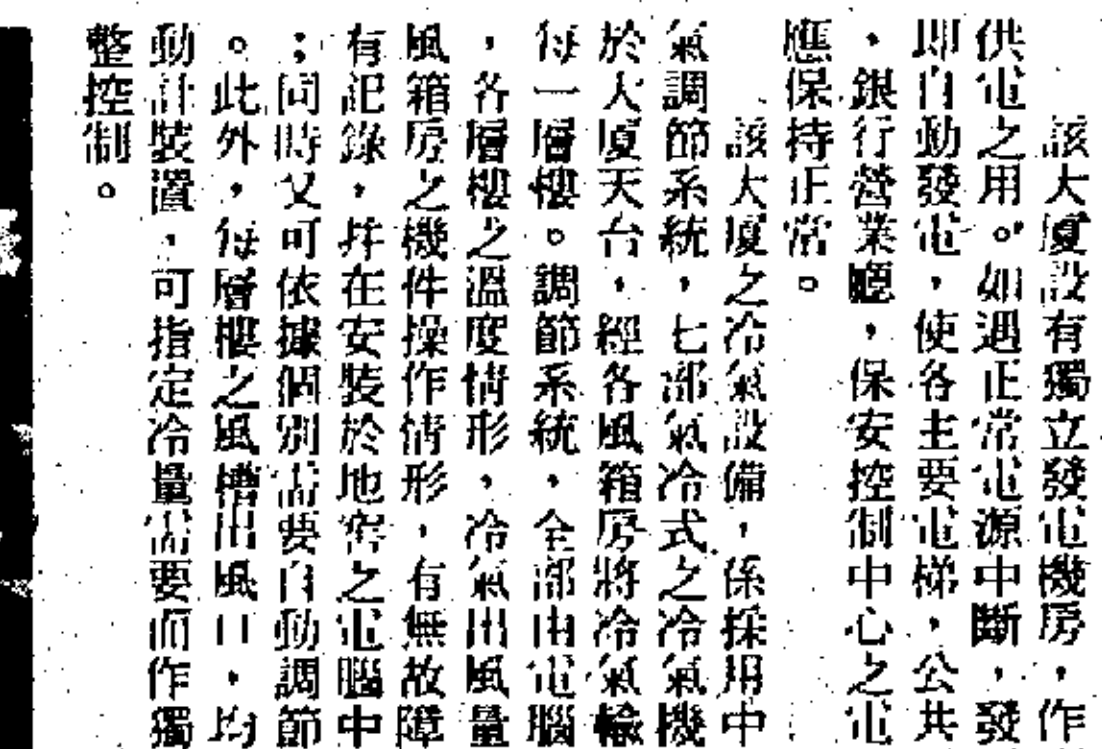 該大廈設有獨立發電機房，作
供電之用。如遇正常電源中斷，發
即自動發電，使各主要電梯，公共
、銀行營業廳，保安控制中心之電
應保持正常。
該大廈之冷氣設備，係採用中
氣調節系統，七部氣冷式之冷氣機
於大廈天台，經各風箱房將冷氣輸
每一層樓。調節系統，全部由電腦
，各層樓之溫度情形，冷氣出風量
風箱房之機件操作情形，有無故障
有記錄，幷在安裝於地窖之電腦中
；同時又可依據個別需要自動調節
。此外，每層樓之風槽出風口，均
動計裝置，可指定冷量需要而作獨
整控制。